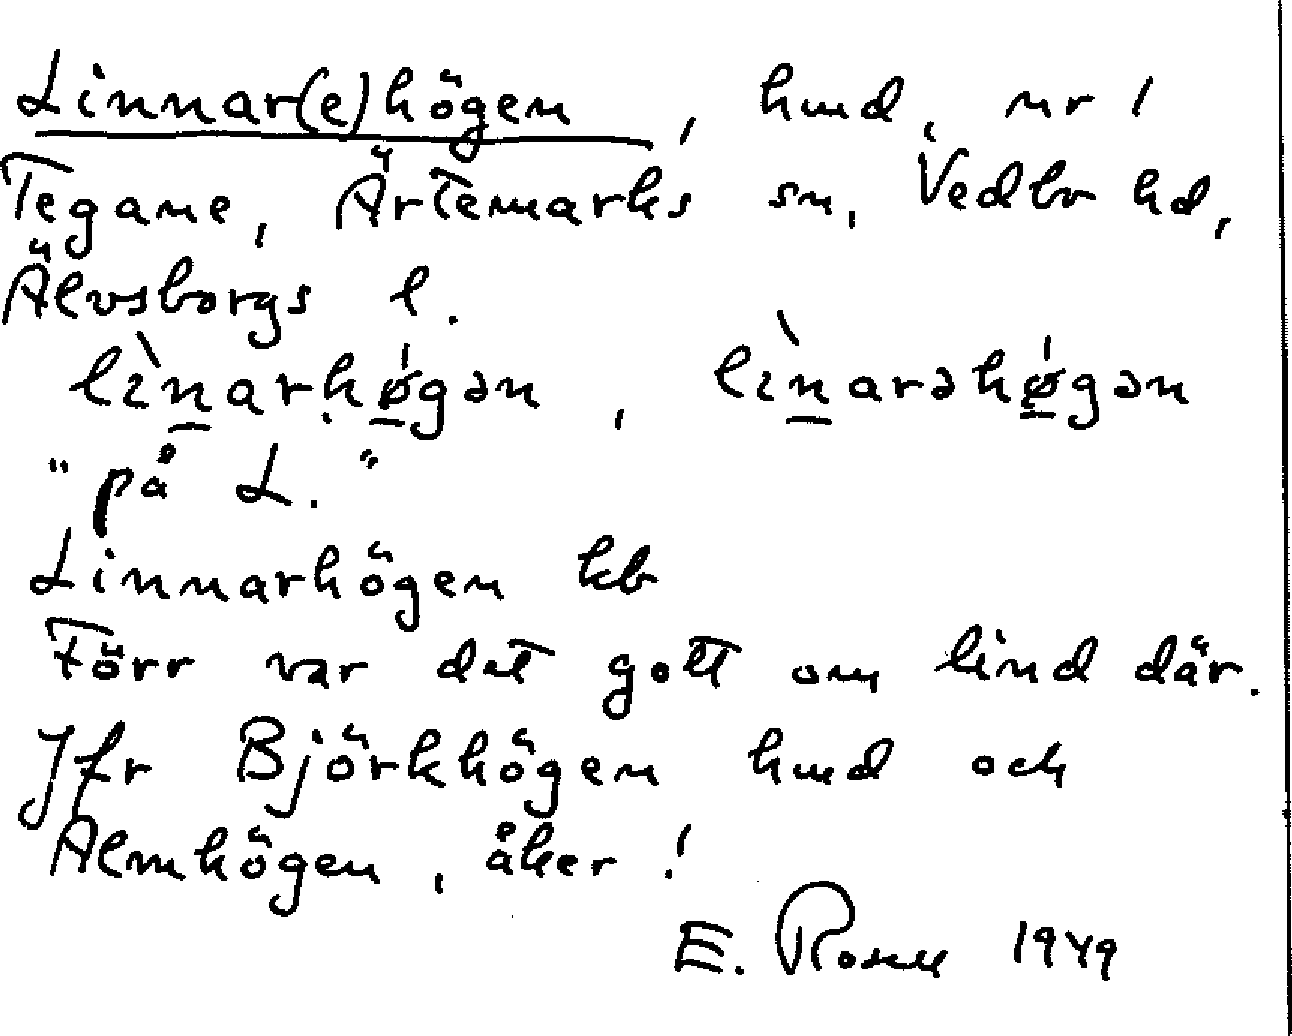 Linnar(e)högen, hmd, nr 1
Tegane, Ärtemarks sn, Vedbo hd,
Älvsborgs l.
lìnarhǿ̱gən, lìnarəhǿ̱gən
"på L."
Linnarhögen kb
Förr var det gott om lind där.
Jfr Björkhögen hmd och
Almhögen, åker!
E. Rosell 1949